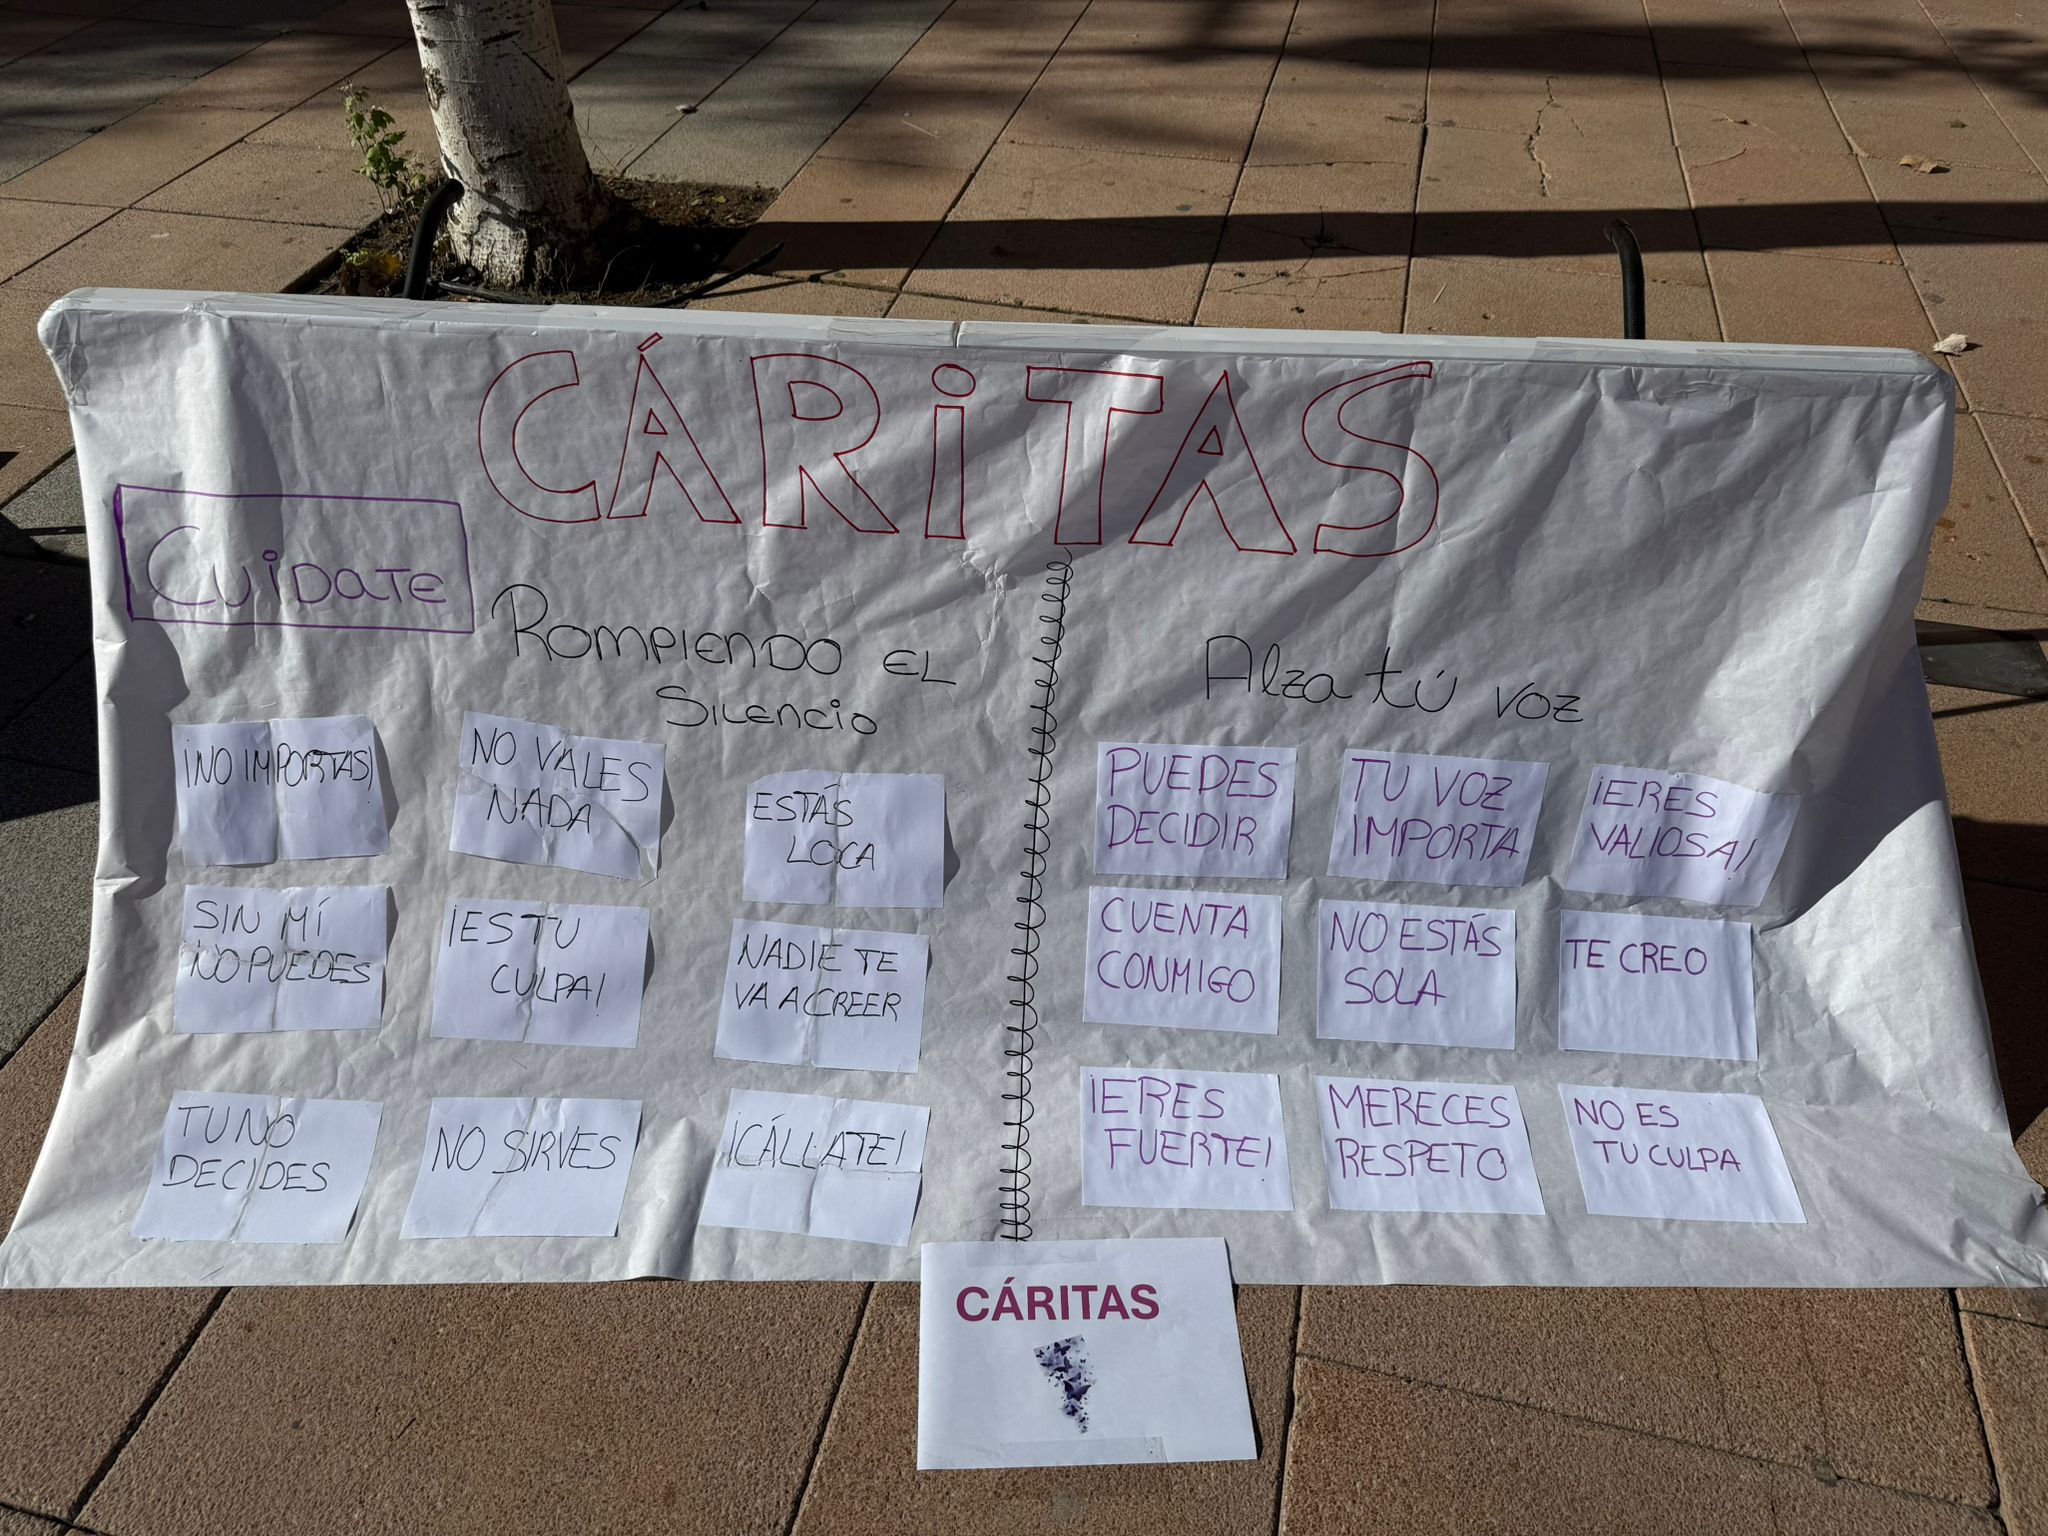 CÁRiTAS
CUIDATE
ROMPIENDO EL
SILENCIO
¡NO IMPORTAS!
NO VALES
NADA
ESTÁS
LOCA
SIN MÍ
NO PUEDES
¡ES TU
CULPA!
NADIE TE
VA A CREER
TU NO
DECIDES
NO SIRVES
¡CÁLLATE!
Alza tú voz
PUEDES
DECIDIR
TU VOZ
IMPORTA
¡ERES
VALIOSA!
CUENTA
CONMIGO
NO ESTÁS
SOLA
TE CREO
¡ERES
FUERTE!
MERECES
RESPETO
NO ES
TU CULPA
CÁRITAS